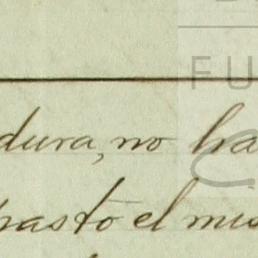 FU
dura, no ha
pasto el mis